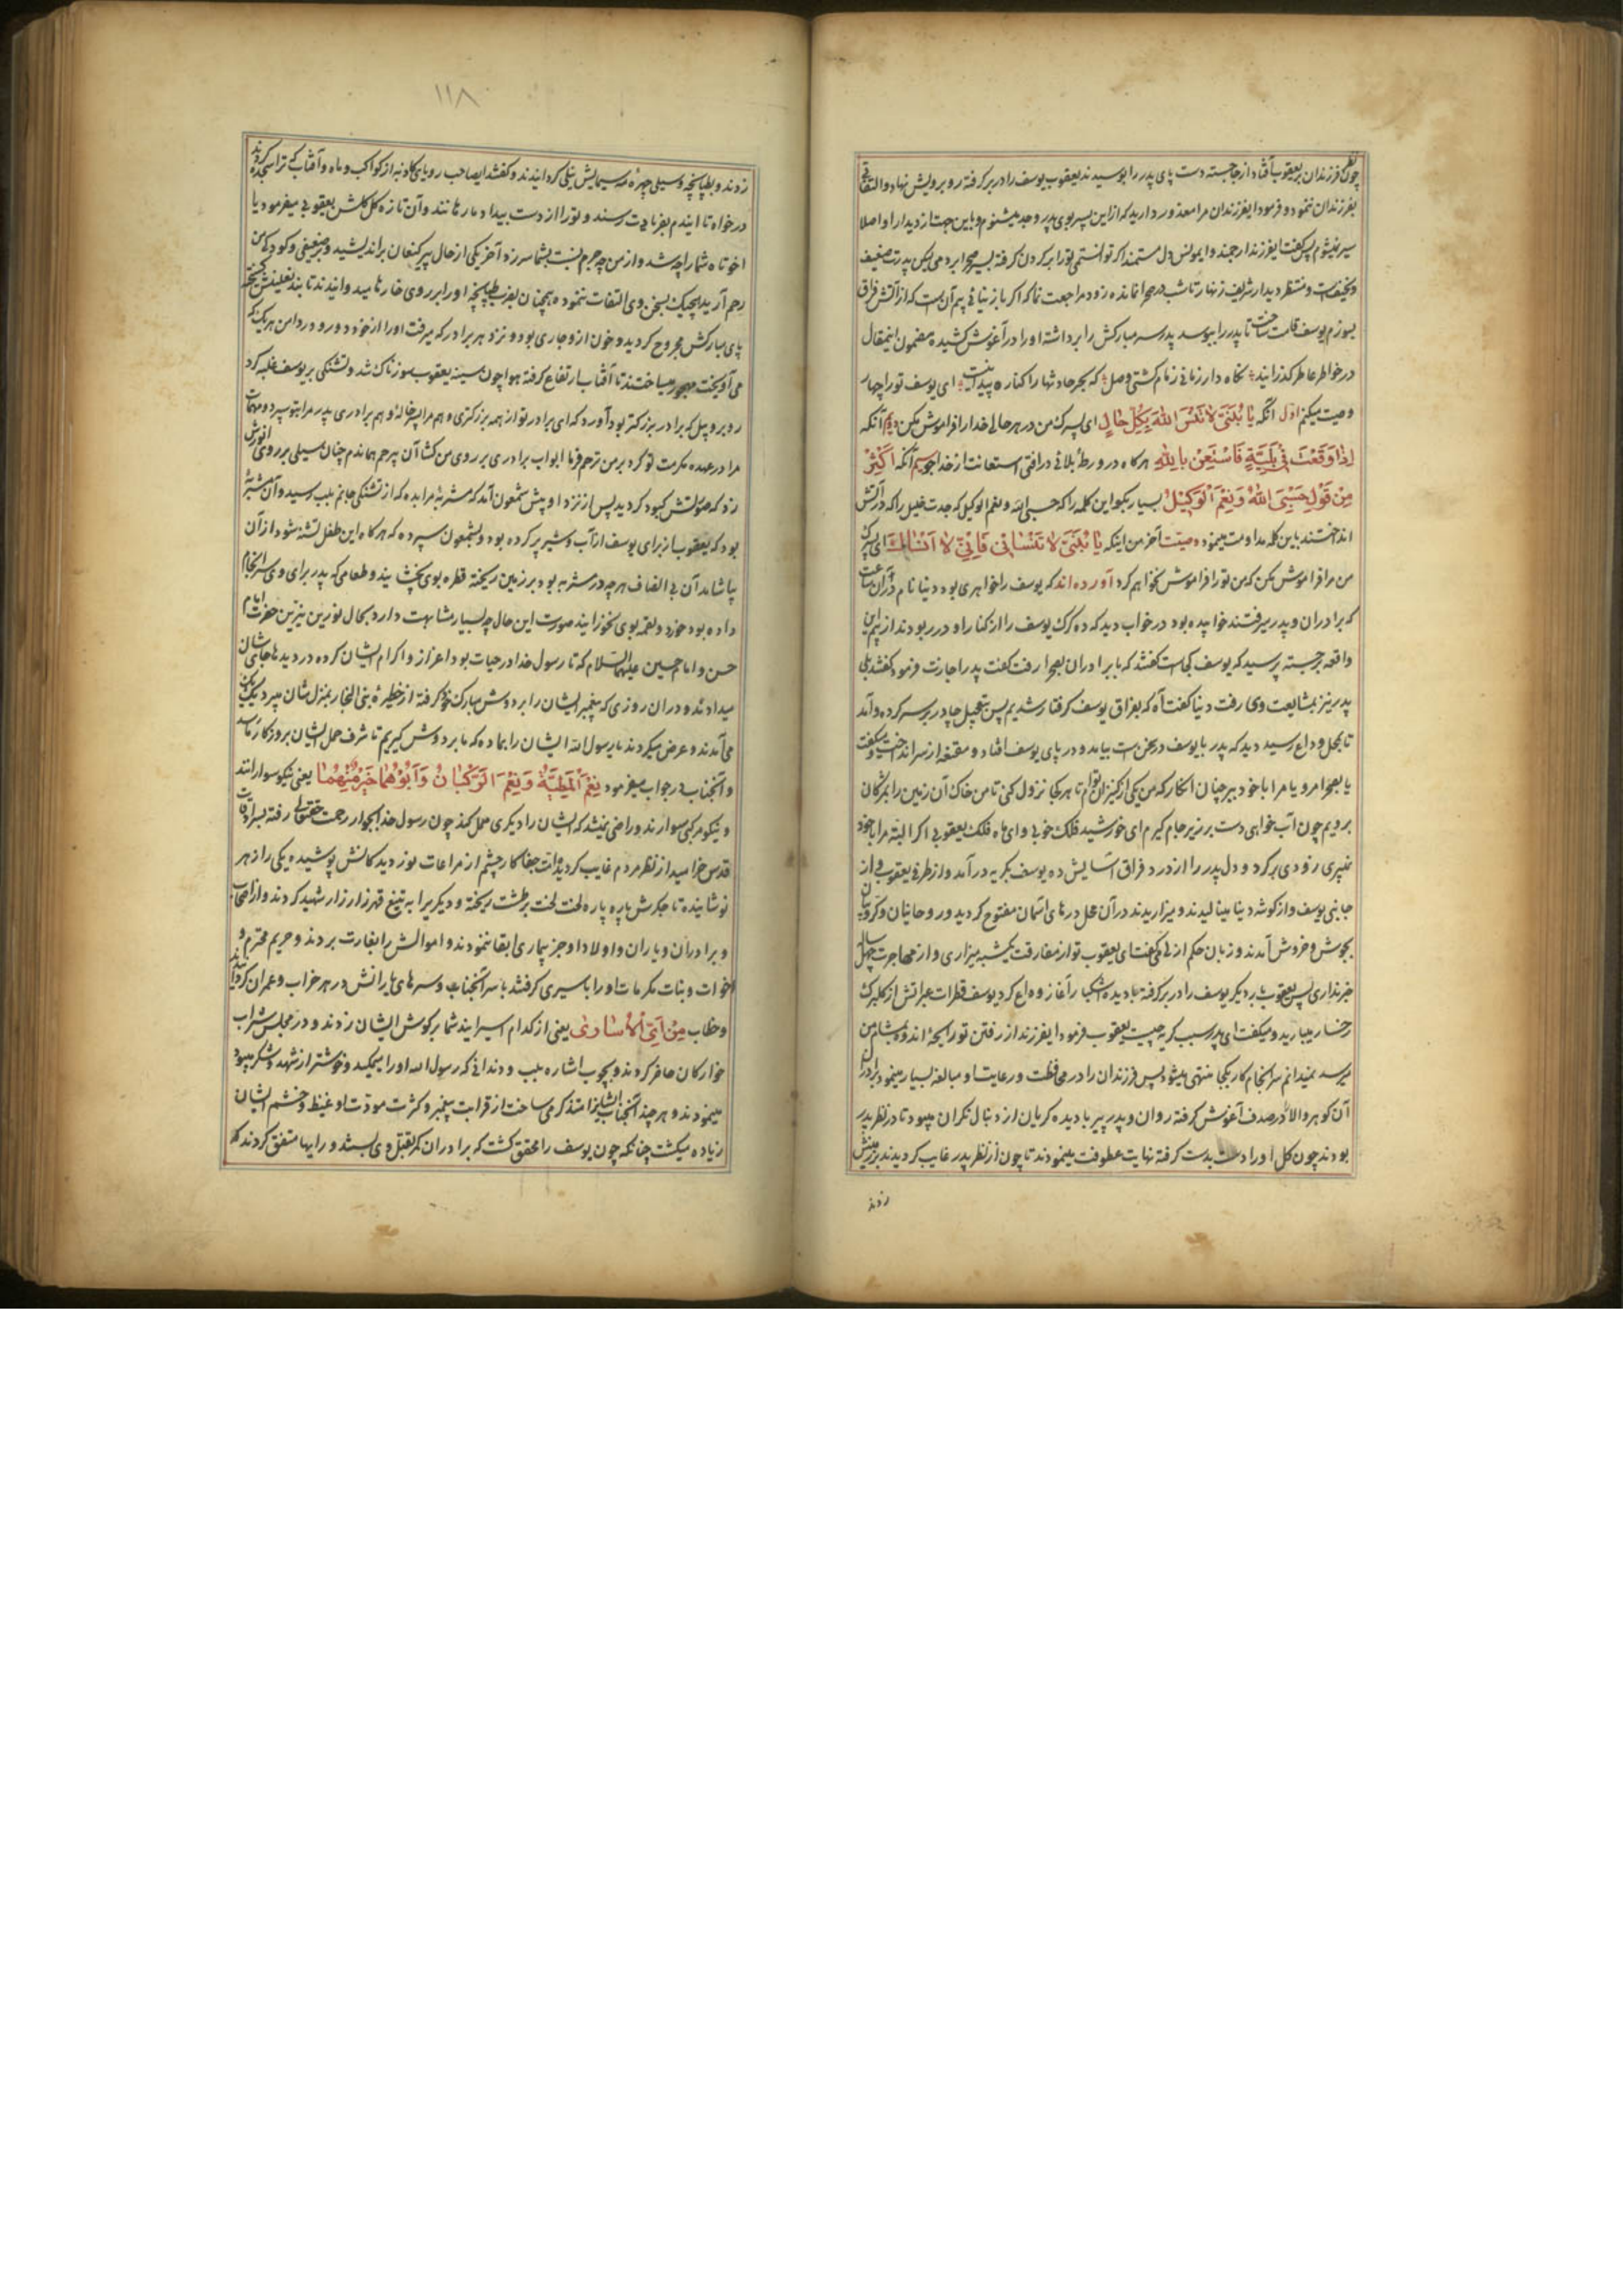 چون نظر فرزندان بر یعقوب افتاد از جا جسته دست و پای پدر را بوسیدند یعقوب یوسف را در بر گرفته رو برویش نهاد و التفاتی
بفرزندان ننمود و فرمود ایفرزندان مرا معذور دارید که از این پسر بوی پدر و جد میشنوم و باین جهت از دیدار او اصلا
سیر نمیشوم پس گفت ایفرزند ارجمند و ایمونس دل مستمند اگر توانستمی تو را بر گردن گرفته بسیر صحرا بردمی لیکن پدرت ضعیف
و نحیفست و منتظر دیدار شریف زنهار تا شب در صحرا نمانده زود مراجعت نما که اگر باز نیائی بیم آن است که از آتش فراق
بسوزم یوسف قامت ساخت تا پدر را ببوسد پدر سر مبارکش را برداشته او را در آغوش کشیده مضمون اینمقال
در خواطر عاطر گذرانید نگاه دار زمانی زمام کشتی وصل که بحر حادثها را کناره پیدا نیست ای یوسف تو را چهار
وصیت میکنم اول آنکه یا بُنَیَّ لا تَنْسَ اللهَ بِکُلِّ حالٍ ای پسرک من در هر حالی خدا را فراموش مکن دویم آنکه
اِذا وَقَعْتَ فی بَلِیَّةٍ فَاسْتَعِنْ بِاللهِ هر گاه در ورطهٔ بلائی درافتی استعانت از خدا جو سیم آنکه اَکْثِرْ
مِنْ قَوْلِ حَسْبِیَ اللهُ وَ نِعْمَ الْوَکیلُ بسیار بگو این کلمه را که حسبی الله و نعم الوکیل که جدت خلیل را که در آتش
انداختند باین کلمه مداومت مینمود وصیت آخر من اینکه یا بُنَیَّ لا تَنْسانی فَاِنّی لا اَنْساکَ ای پسرک
من مرا فراموش مکن که من تو را فراموش نخواهم کرد آورده‌اند که یوسف را خواهری بود دنیا نام در آن ساعت
که برادران و پدر میرفتند خوابیده بود در خواب دید که ده گرگ یوسف را از کنار او در ربودند از بیم این
واقعه برجسته پرسید که یوسف کجاست گفتند که با برادران بصحرا رفت گفت پدر اجازت فرمود گفتند بلی
پدر نیز بمشایعت وی رفت دنیا گفت آه که بفراق یوسف گرفتار شدیم پس بتعجیل چادر بر سر کرده و آمد
تا بمحل وداع رسید دید که پدر با یوسف در سخن است بیامد و در پای یوسف افتاد و مقنعه از سر انداخت و میگفت
یا بصحرا مرو یا مرا با خود ببر چنان انگار که من یکی از کنیزان توام تا هر کجا نزول کنی تا من خاک آن زمین را بمژگان
برویم چون آب خواهی دست بر زیر جام گیرم ای خورشید فلک خوبی و ای ماه فلک یعقوبی اگر البته مرا با خود
نمیبری زودی برگرد و دل پدر را از درد فراق آسایش ده یوسف بگریه درآمد و از طرفی یعقوب و از
جانبی یوسف و از گوشه دنیا مینالیدند و میزاریدند در آن محل درهای آسمان مفتوح گردید و روحانیان و کروبیان
بجوش و خروش آمدند و زبان حکم ازلی میگفت ای یعقوب تو از مفارقت یکشبه میزاری و از مهاجرت چهل سال
خبر نداری پس یعقوب بار دیگر یوسف را در بر گرفته با دیده اشکبار آغاز وداع کرد یوسف قطرات عبراتش از گلبرگ
رخسار میبارید و میگفت ای پدر سبب گریه چیست یعقوب فرمود ایفرزند از رفتن تو رایحهٔ اندوه بمشام من
میرسد نمیدانم سرانجام کار بکجا منتهی میشود پس فرزندان را در محافظت و رعایت او مبالغه بسیار مینمود برادران
آن گوهر والا را در صدف آغوش گرفته روان و پدر پیر با دیده گریان از دنبال نگران میبود تا در نظر پدر
بودند چون گل او را دست بدست گرفته نهایت عطوفت مینمودند تا چون از نظر پدر غایب گردیدند بر زمینش
زدند
۱۱۸
زدند و بطپانچه و سیلی چهرهٔ مه سیمایش نیلی گردانیدند و گفتند ایصاحب رویای کاذبه از کواکب و ماه و آفتاب که ترا سجده کردند
درخواه تا ایندم بفریادت رسند و تو را از دست بیداد ما رهانند و آن تازه گل گلشن یعقوبی میفرمود یا
اخوتاه شما را چه شد و از من چه جرم نسبت بشما سر زد آخر یکی از حال پیر کنعان براندیشید و بر ضعیفی و کودکی من
رحم آرید هیچیک بسخن وی التفات ننموده همچنان بضرب طپانچه او را بر روی خارها میدوانیدند تا بند نعلینش گسیخته
پای مبارکش مجروح گردید و خون از او جاری بود و نزد هر برادر که میرفت او را از خود دور و در دامن هر یک که
می آویخت مهجور میساختند تا آفتاب ارتفاع گرفته هوا چون سینه یعقوب سوزناک شد و تشنگی بر یوسف غلبه کرد
رو بروبیل که برادر بزرگتر بود آورد که ای برادر تو از همه بزرگتری و هم مرا پسر خالهٔ و هم برادری پدر مرا بتو سپرد و مهمات
مرا در عهده مکرمت تو کرد بر من ترحم فرما ابواب برادری بر روی من گشا آن بیرحم هماندم چنان سیلی بر روی انورش
زد که صورتش کبود گردید پس از نزد او پیش شمعون آمد که مشربهٔ مرا بده که از تشنگی جانم بلب رسید و آن مشربهٔ
بود که یعقوب از برای یوسف از آب و شیر پر کرده بود و بشمعون سپرده که هر گاه این طفل تشنه شود از آن
بیاشامد آن بی انصاف هر چه در مشربه بود بر زمین ریخته قطره بوی نچشانیدند و طعامی که پدر برای وی سرانجام
داده بود خورد و لقمه بوی نخورانیدند صورت این حال چه بسیار مشابهت دارد بحال نورین نیرین حضرت امام
حسن و امام حسین علیهما السلام که تا رسول خدا در حیات بود اعزاز و اکرام ایشان کرده در دیدها جایشان
میدادند و در ان روزی که پیغمبر ایشان را بر دوش مبارک خود گرفته از خطیرهٔ بنی النجار بمنزل شان میبرد یک یک
می آمدند و عرض میکردند یا رسول الله ایشان را بما ده که ما بر دوش گیریم تا شرف حمل ایشان بروزگار ما رسد
و آنجناب در جواب میفرمود نِعْمَ الْمَطِیَّةُ وَ نِعْمَ الرَّکْبانُ وَ اَبُوْهُما خَیْرٌ مِنْهُما یعنی نیکو سوارانند
و نیکو مرکبی سوارند و راضی نمیشد که ایشان را دیگری حمل کند چون رسول خدا بجوار رحمت حقتعالی رفته بسرادقات
قدس خرامید از نظر مردم غایب گردید امت جفاکار چشم از مراعات نور دیدگانش پوشیده یکی را زهر
نوشانیده تا جگرش پاره پاره لخت لخت بر طشت ریخته و دیگریرا به تیغ قهر زار زار شهید کردند و از اصحاب
و برادران و یاران و اولاد او جز بیماری ابقا ننمودند و اموالش را بغارت بردند و حریم محترم و
اخوات و بنات مکرمات او را باسیری گرفتند با سر آنجناب و سرهای یارانش در هر خراب و عمران گردانیدند
و خطاب مِنْ اَیِّ الْاُساری یعنی از کدام اسیرانید شما بر گوش ایشان زدند و در مجلس شراب
خوارگان حاضر کردند و بچوب اشاره بلب و دندانی که رسول الله او را میمکید و خوشتر از شهد و شکر میبود
مینمودند و هر چند آنجناب ایشانرا متذکر می ساخت از قرابت پیغمبر و کثرت مودت او غیظ و خشم ایشان
زیاده میگشت چنانکه چون یوسف را محقق گشت که برادران کمر بقتل وی بستند و رایها متفق کردند که